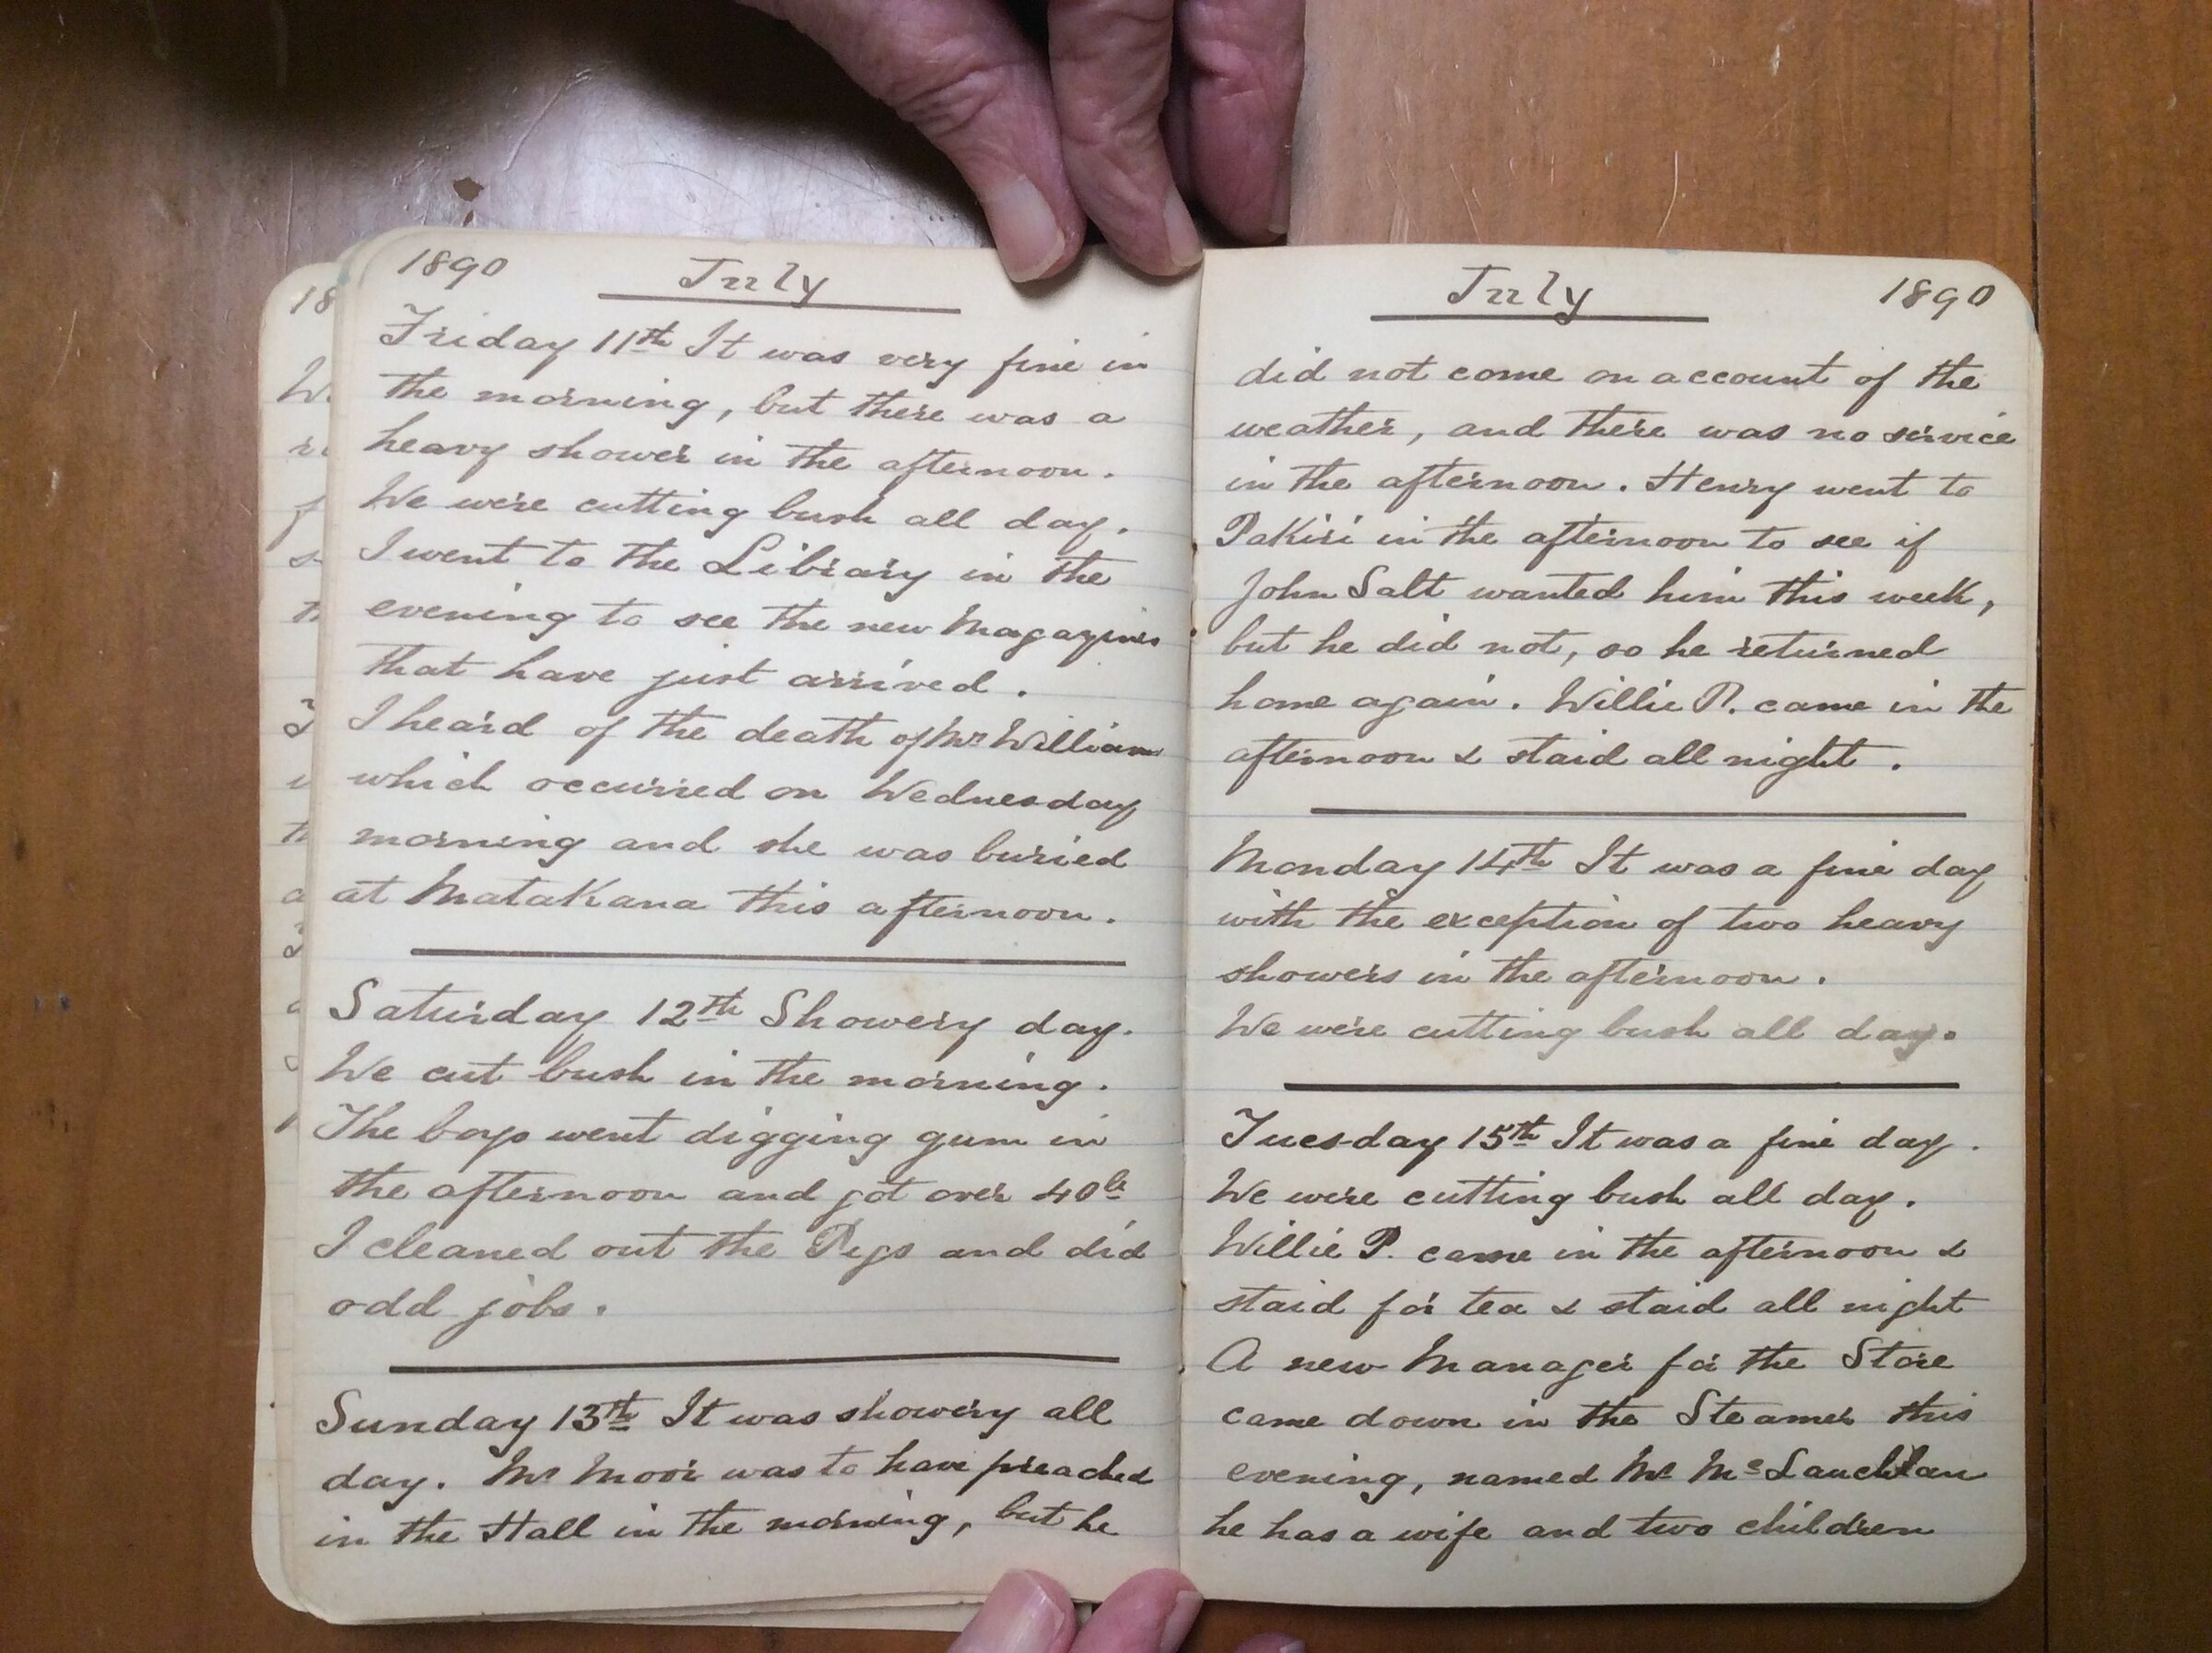 1890 July
Friday 11th It was very fine in
the morning, but there was a
heavy shower in the afternoon.
We were cutting bush all day.
I went to the Library in the
evening to see the new Magazines
that have just arrived.
I heard of the death of Mrs William
which occurred on Wednesday
morning and she was buried
at Matakana this afternoon.
Saturday 12th Showery day.
We cut bush in the morning.
The boys went digging gum in
the afternoon and got over 40lb
I cleaned out the Pigs and did
odd jobs.
Sunday 13th It was showery all
day. Mr Moor was to have preached
in the Hall in the morning, but he
July 1890
did not come on account of the
weather, and there was no service
in the afternoon. Henry went to
Pakiri in the afternoon to see if
John Salt wanted him this week,
but he did not, so he returned
home again. Willie P. came in the
afternoon & staid all night.
Monday 14th It was a fine day
with the exception of two heavy
showers in the afternoon.
We were cutting bush all day.
Tuesday 15th It was a fine day.
We were cutting bush all day.
Willie P. came in the afternoon &
staid for tea & staid all night
A new Manager for the Store
came down in the Steamer this
evening, named Mr McLauchlan
he has a wife and two children